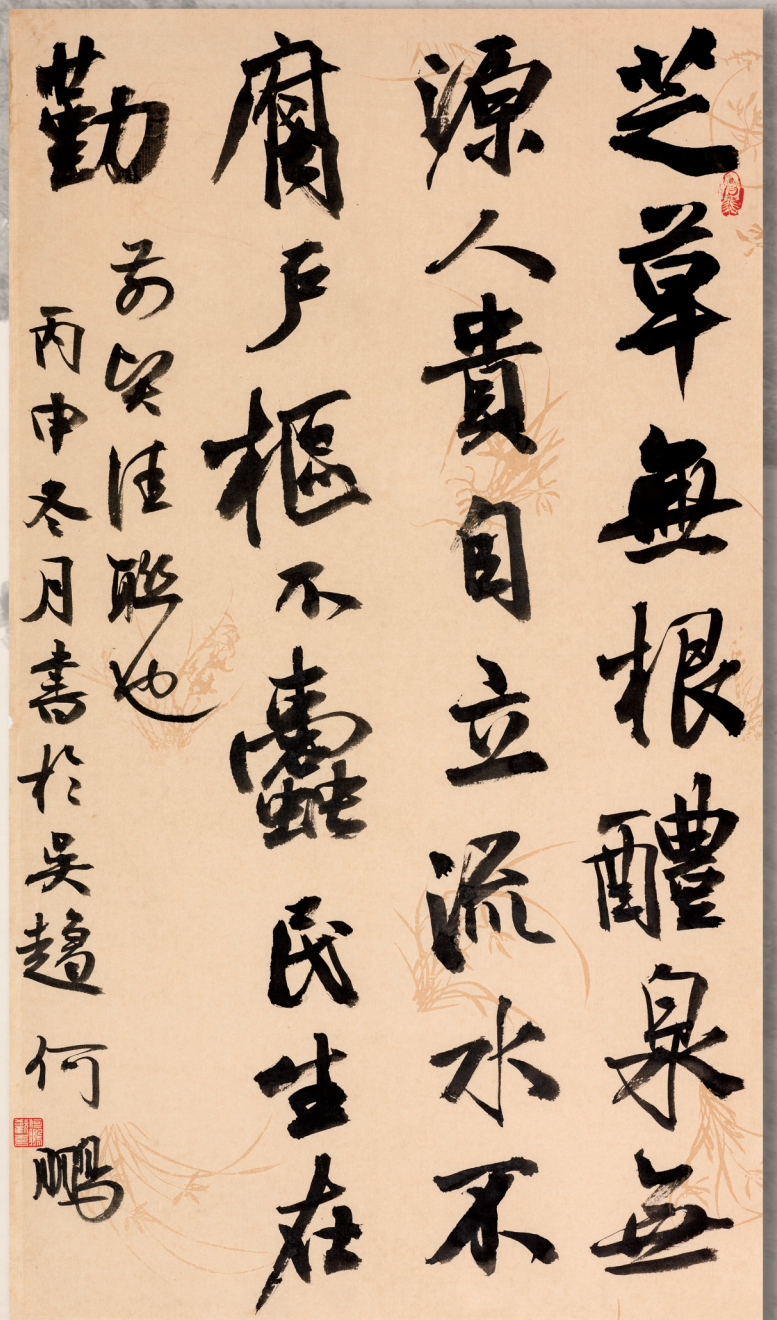 芝草無根醴泉無
源人貴自立流水不
腐户樞不蠹民生在
勤
前賢佳聯也
丙申冬月書於吴趨何鵬